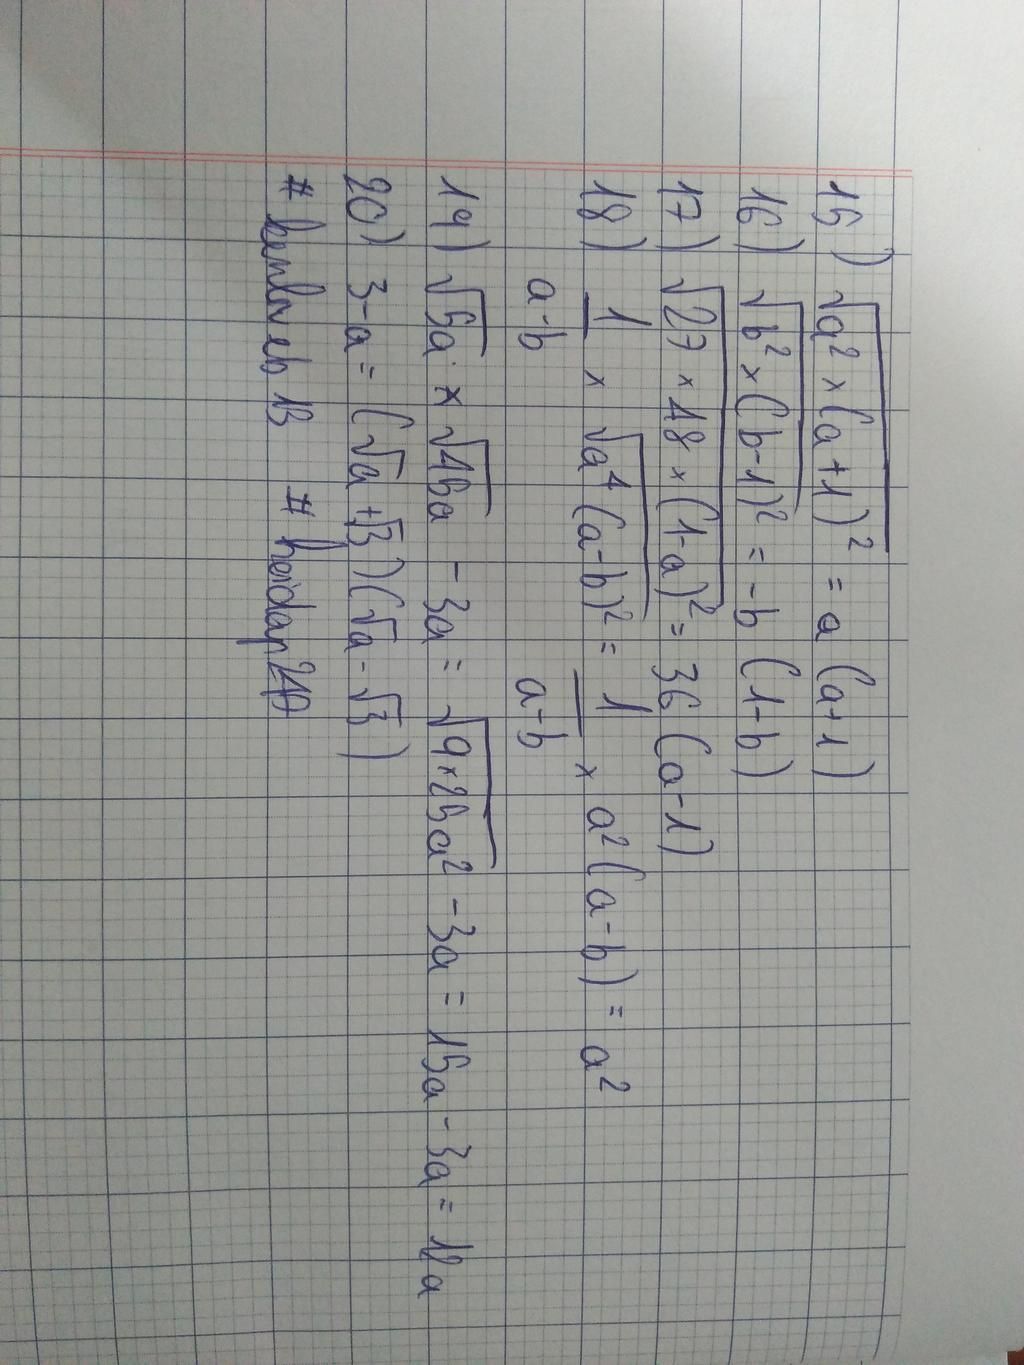 15) √a² × (a+1)² = a (a+1)
16) √b² × (b-1)² = -b (1-b)
17) √27 × 48 × (1-a)² = 36 (a-1)
18) 1/a-b × √a⁴ (a-b)² = 1/a-b × a² (a-b) = a²
19) √5a · × √45a - 3a = √9×25a² - 3a = 15a - 3a = 12a
20) 3-a = (√a + √3) (√a - √3)